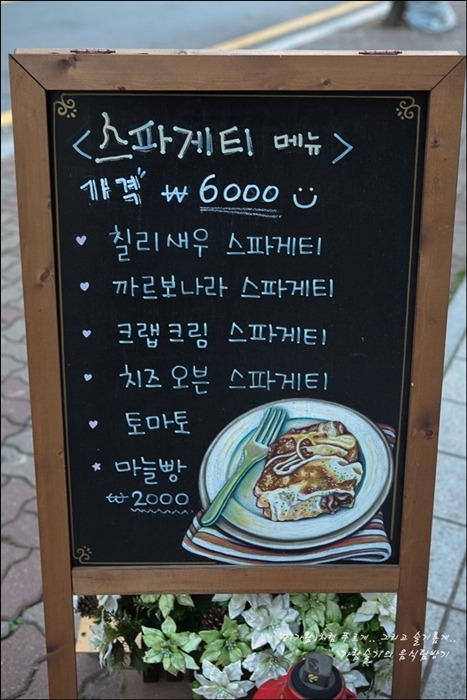 <스파게티 메뉴>
가격 ₩6000
칠리새우 스파게티
까르보나라 스파게티
크랩크림 스파게티
치즈 오븐 스파게티
토마토
마늘빵
₩2000
그리고 슬기롭게..
음식탐방기